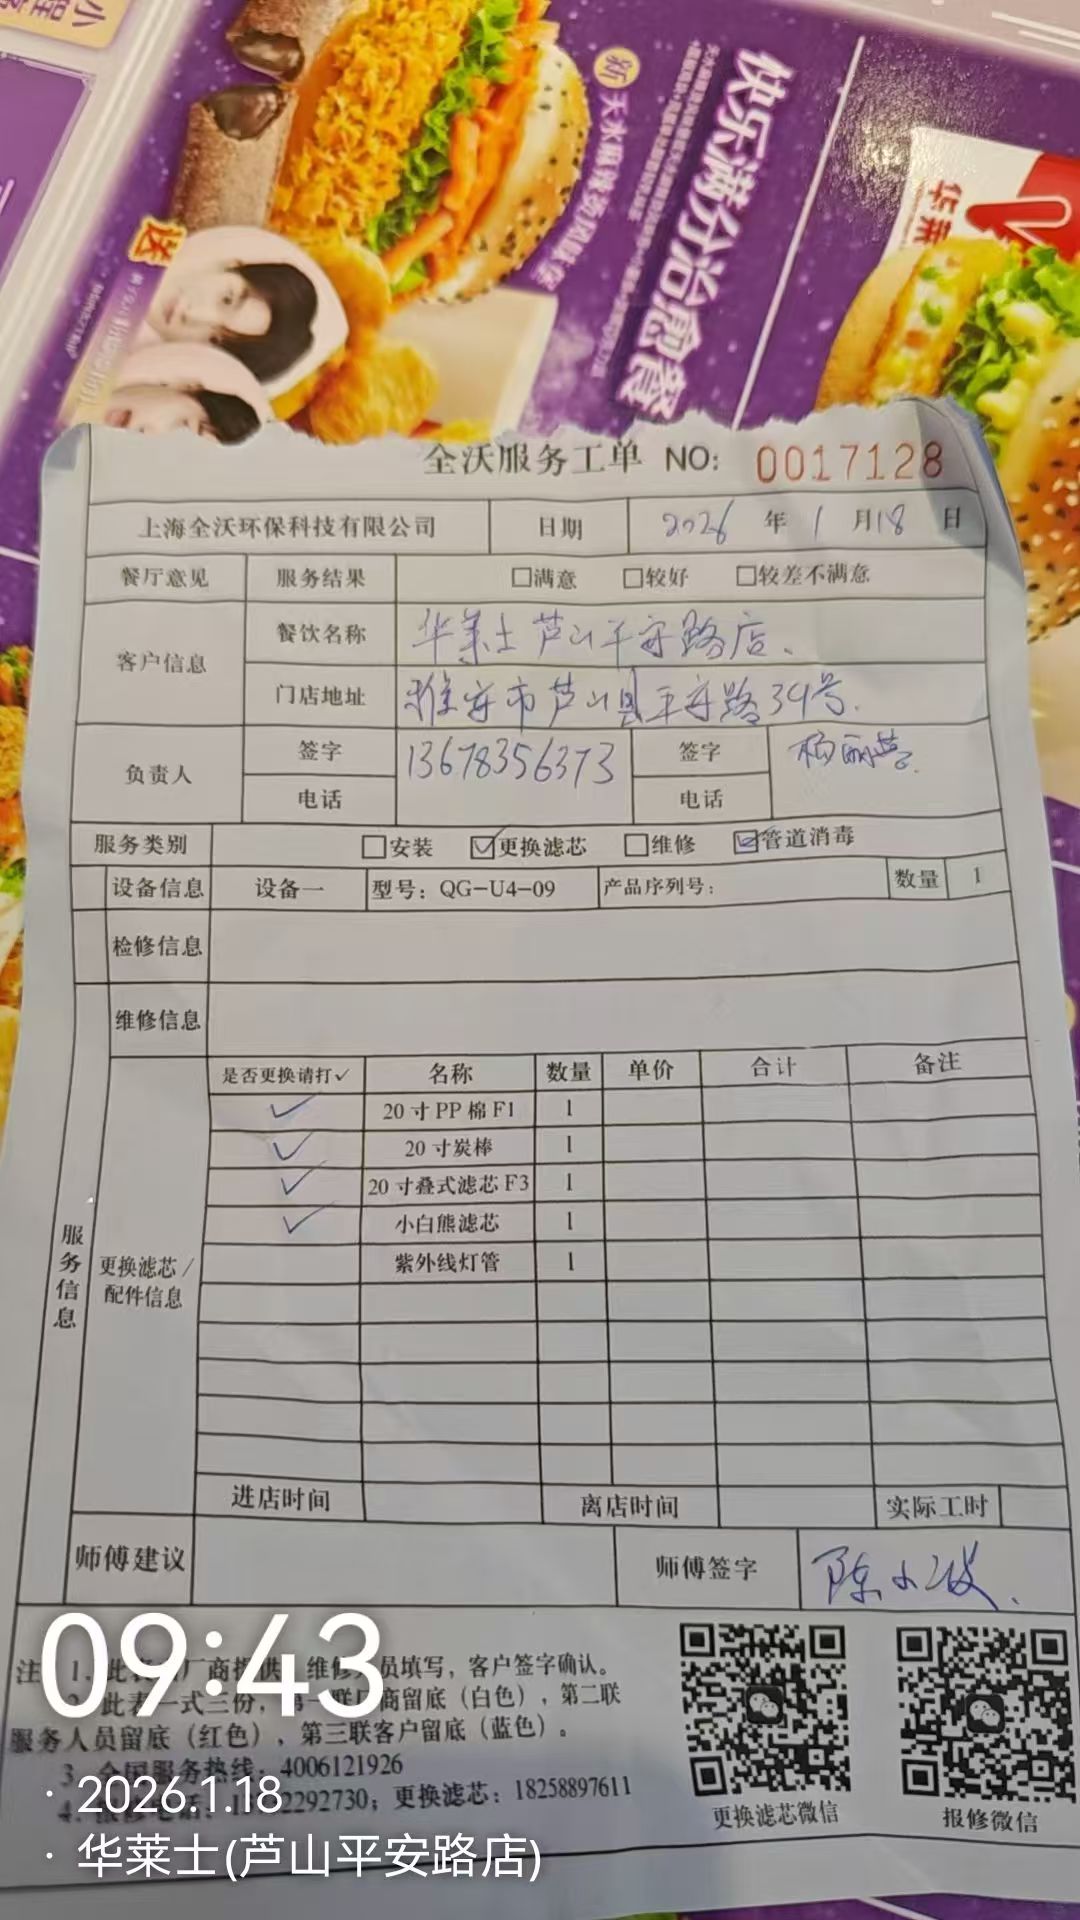 快乐满分治愈餐
新
送
全沃服务工单 NO: 0017128
上海全沃环保科技有限公司 日期 2026 年 1 月 18 日
餐厅意见 服务结果 □满意 □较好 □较差不满意
客户信息 餐饮名称 华莱士芦山平安路店、
门店地址 雅安市芦山县平安路34号.
负责人 签字 13678356373 签字 杨丽蓉
电话 电话
服务类别 □安装 ☑更换滤芯 □维修 ☑管道消毒
设备信息 设备一 型号：QG-U4-09 产品序列号： 数量 1
检修信息
维修信息
是否更换请打✓ 名称 数量 单价 合计 备注
✓ 20寸PP棉F1 1
✓ 20寸炭棒 1
✓ 20寸叠式滤芯F3 1
✓ 小白熊滤芯 1
紫外线灯管 1
服务信息
更换滤芯/
配件信息
进店时间 离店时间 实际工时
师傅建议 师傅签字 陈小波.
注 1、此表 厂商提供 维修 员填写，客户签字确认。
此表一式三份，第一联厂商留底（白色），第二联
服务人员留底（红色），第三联客户留底（蓝色）。
3 全国服务热线：4006121926
4 2292730；更换滤芯：18258897611
更换滤芯微信 报修微信
09:43
· 2026.1.18
· 华莱士(芦山平安路店)